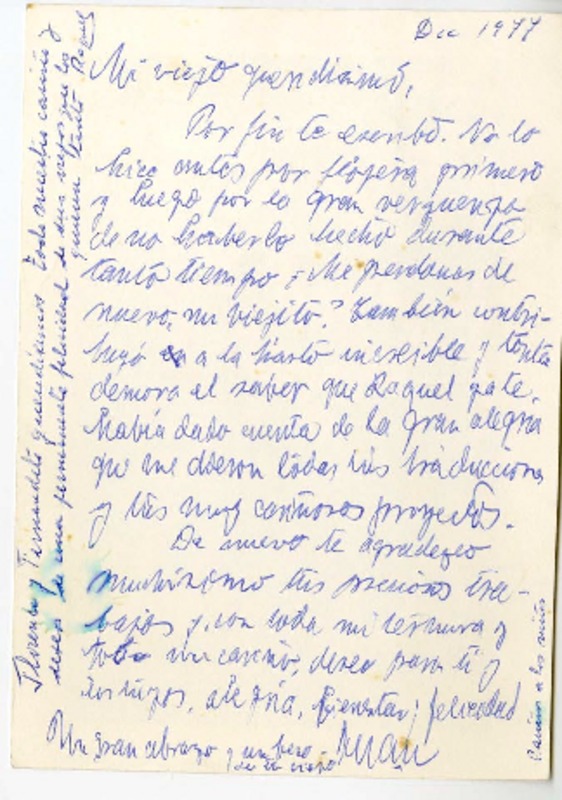 Dic 1977
Mi viejo queridísimo,
Por fin te escribo. No lo
hice antes por flojera primero
y luego por la gran vergüenza
de no haberlo hecho durante
tanto tiempo ¿Me perdonas de
nuevo, mi viejito? También contri-
buyó a la hasta increíble y tonta
demora el saber que Raquel ya te
había dado cuenta de la gran alegría
que me dieron todas tus traducciones
y tus muy cariñosos proyectos.
De nuevo te agradezco
muchísimo tus preciosos tra-
bajos y, con toda mi ternura y
todo mi cariño, deseo para ti y
los tuyos, alegría, bienestar, felicidad
Un gran abrazo y un beso
de tu viejo
Juan
queridísimos todo nuestro cariño y
deseo de una permanente felicidad de sus viejos que los
quieren tanto Raquel
Cariños a los niños